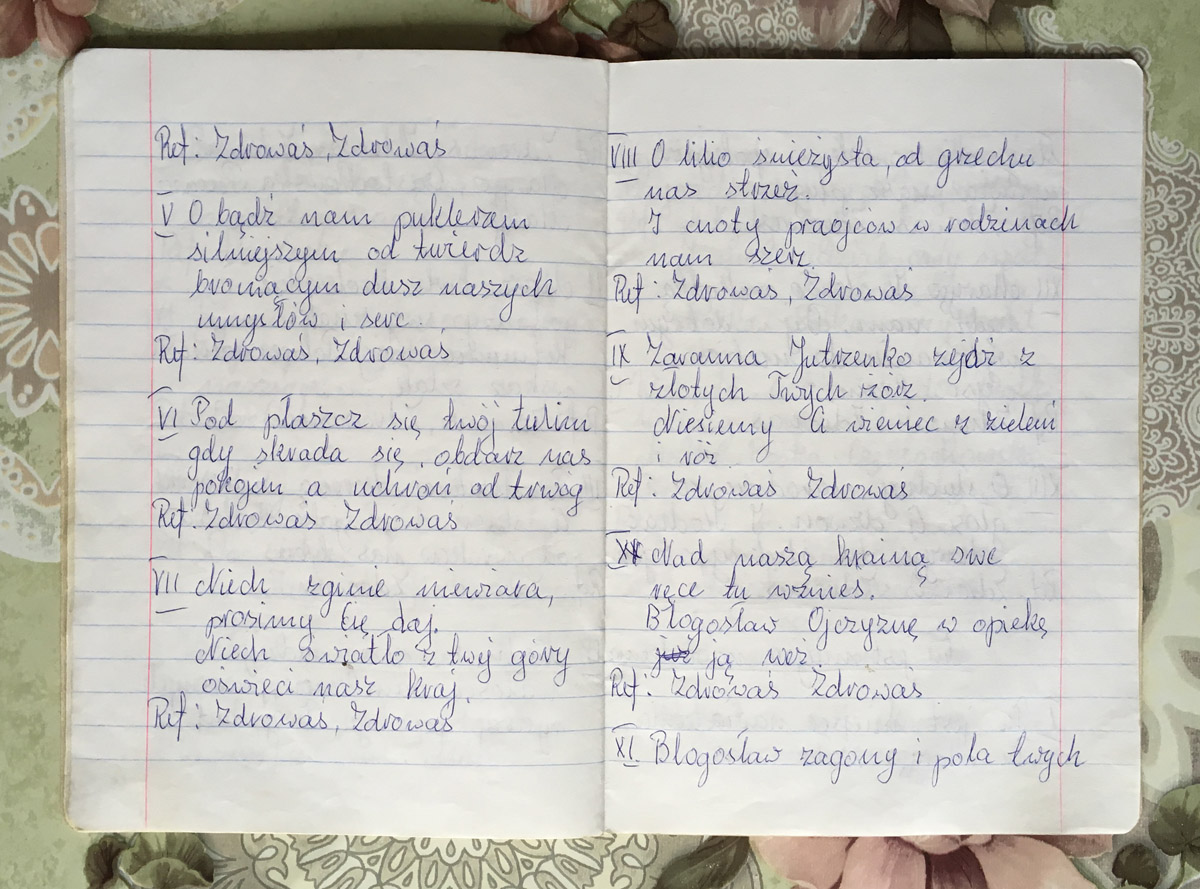 Ref: Zdrowaś, Zdrowaś
V O bądź nam puklerzem
silniejszym od twierdz
broniącym dusz naszych
umysłów i serc.
Ref: Zdrowaś, Zdrowaś
VI Pod płaszcz się twój tulim
gdy skrada się, obdarz nas
pokojem a uchroń od trwog
Ref: Zdrowaś Zdrowaś
VII Niech zginie niewiara,
prosimy Cię daj.
Niech światło z twej góry
oświeci nasz kraj.
Ref: Zdrowaś, Zdrowaś
VIII O lilio świeżysta, od grzechu
nas strzeż.
I cnoty praojców w rodzinach
nam szerz.
Ref: Zdrowaś, Zdrowaś
IX Zaranna Jutrzenko zejdź z
złotych Twych zórz.
Niesiemy Ci wieniec z zieleni
i róż.
Ref: Zdrowaś Zdrowaś
X Nad naszą krainą swe
ręce tu wznieś.
Błogosław Ojczyznę w opiekę
ją weź.
Ref: Zdrowaś Zdrowaś
XI. Błogosław zagony i pola twych